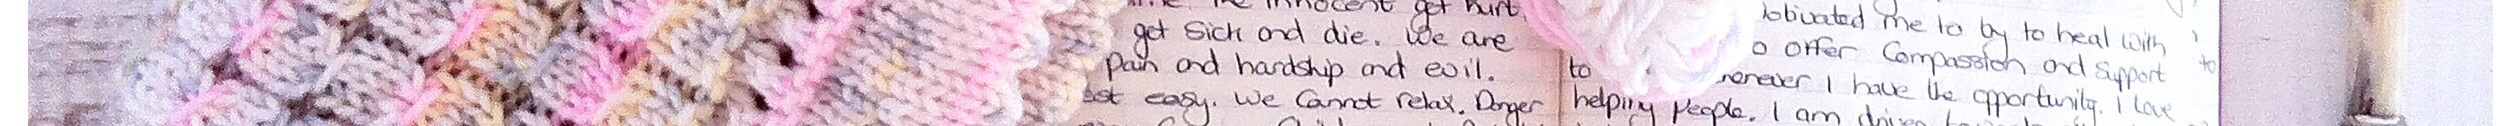 The innocent get hurt.
get sick and die. We are
pain and hardship and evil.
easy. We cannot relax. Danger
me to by to heal with
offer compassion and support
to I have the opportunity. I love
helping people. I am driven